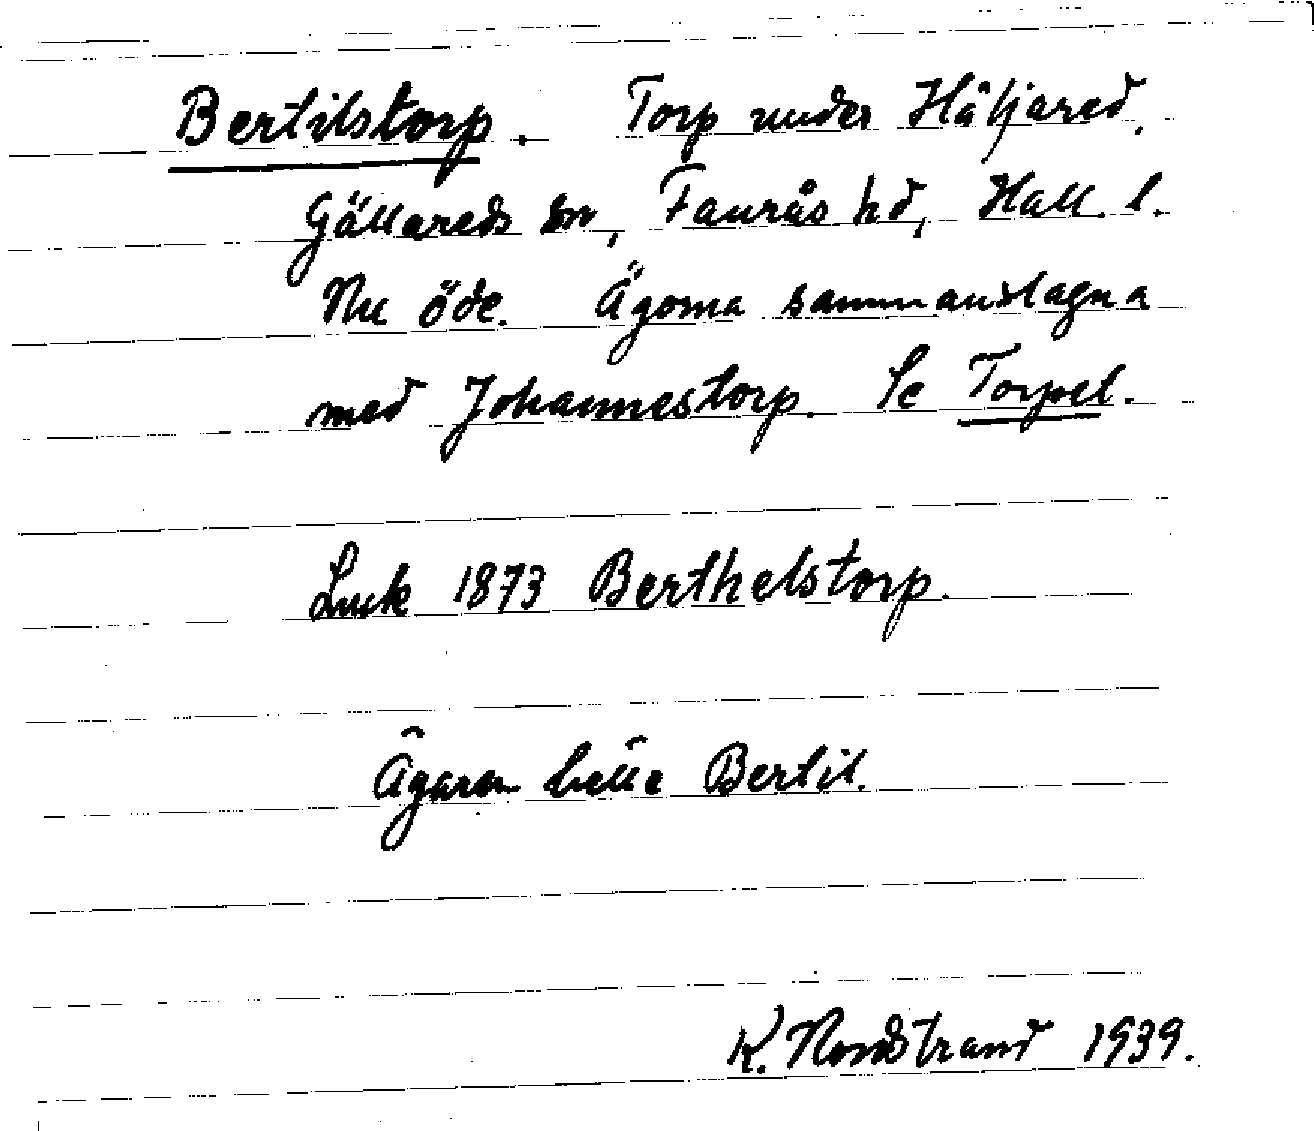 Bertilstorp. Torp under Häljared,
Gällareds sn, Faurås hd, Hall. l.
Nu öde. Ägorna sammanslagna
med Johannestorp. Se Torpet.
Lmk 1873 Berthelstorp.
Ägaren hette Bertil.
K. Nordstrand 1939.